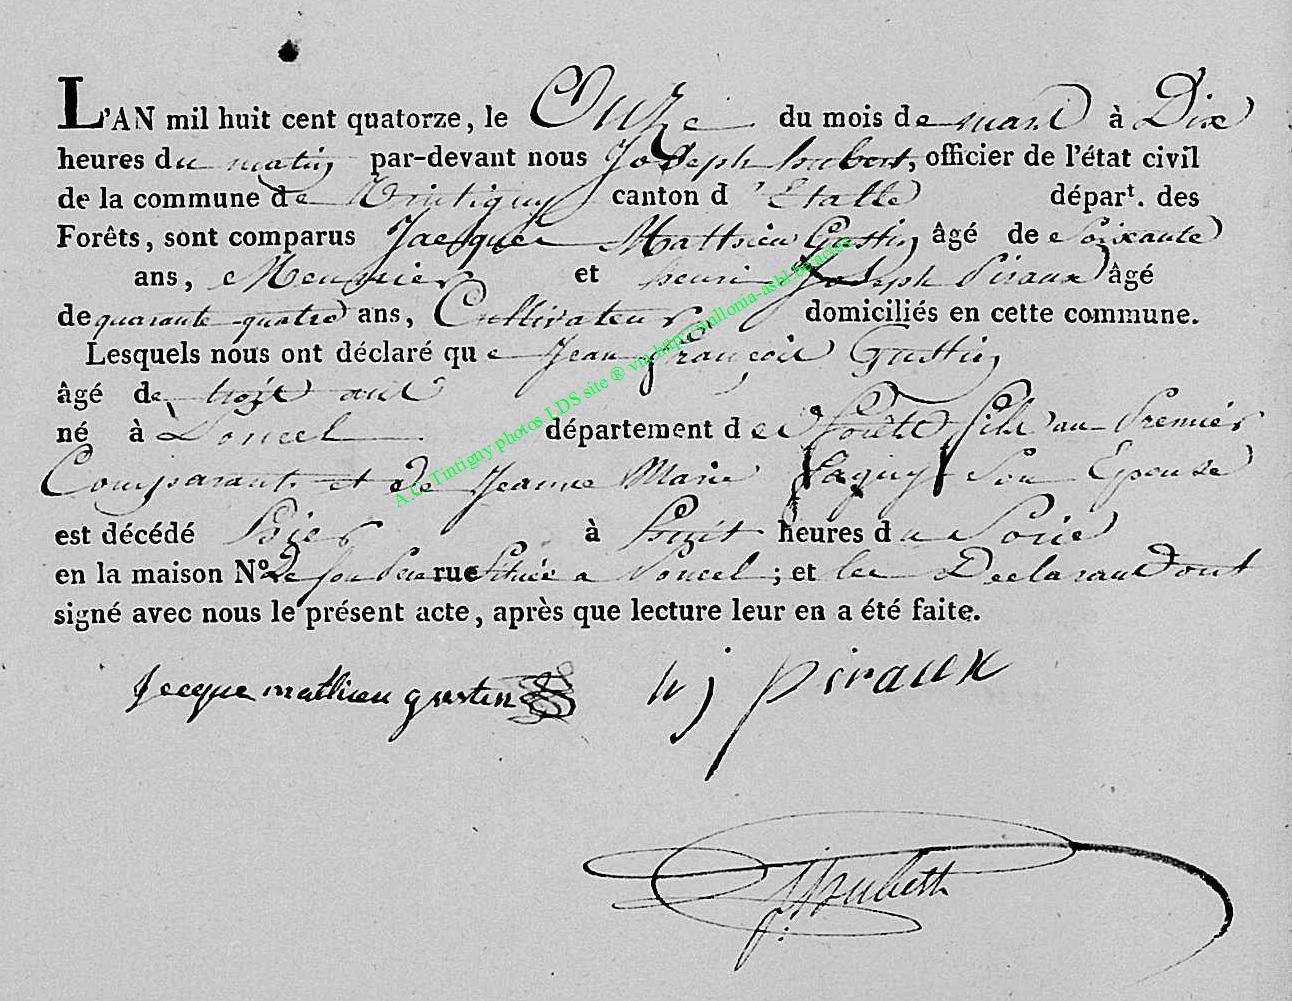 L'AN mil huit cent quatorze, le Onze du mois de mars à Dix
heures du matin par-devant nous Joseph hubert, officier de l'état civil
de la commune de Tintigny canton d'Etalle départ. des
Forêts, sont comparus Jacques Matthieu Gustin âgé de Soixante
ans, Meunier et henri Joseph Piraux âgé
de quarante quatre ans, Cultivateur domiciliés en cette commune.
Lesquels nous ont déclaré que Jean François Gustin
âgé de trois ans
né à Poncel département des Forêts fils au Premier
Comparant et de Jeanne Marie Son Epouse
est décédé hier à huit heures du Soir
en la maison No. de son Père rue Située a Poncel ; et les Declarants ont
signé avec nous le présent acte, après que lecture leur en a été faite.
Jecque mathieu gustin hj piraux
A.C. Tintigny photos LDS site ® via http://wallonia-asbl.be/actes